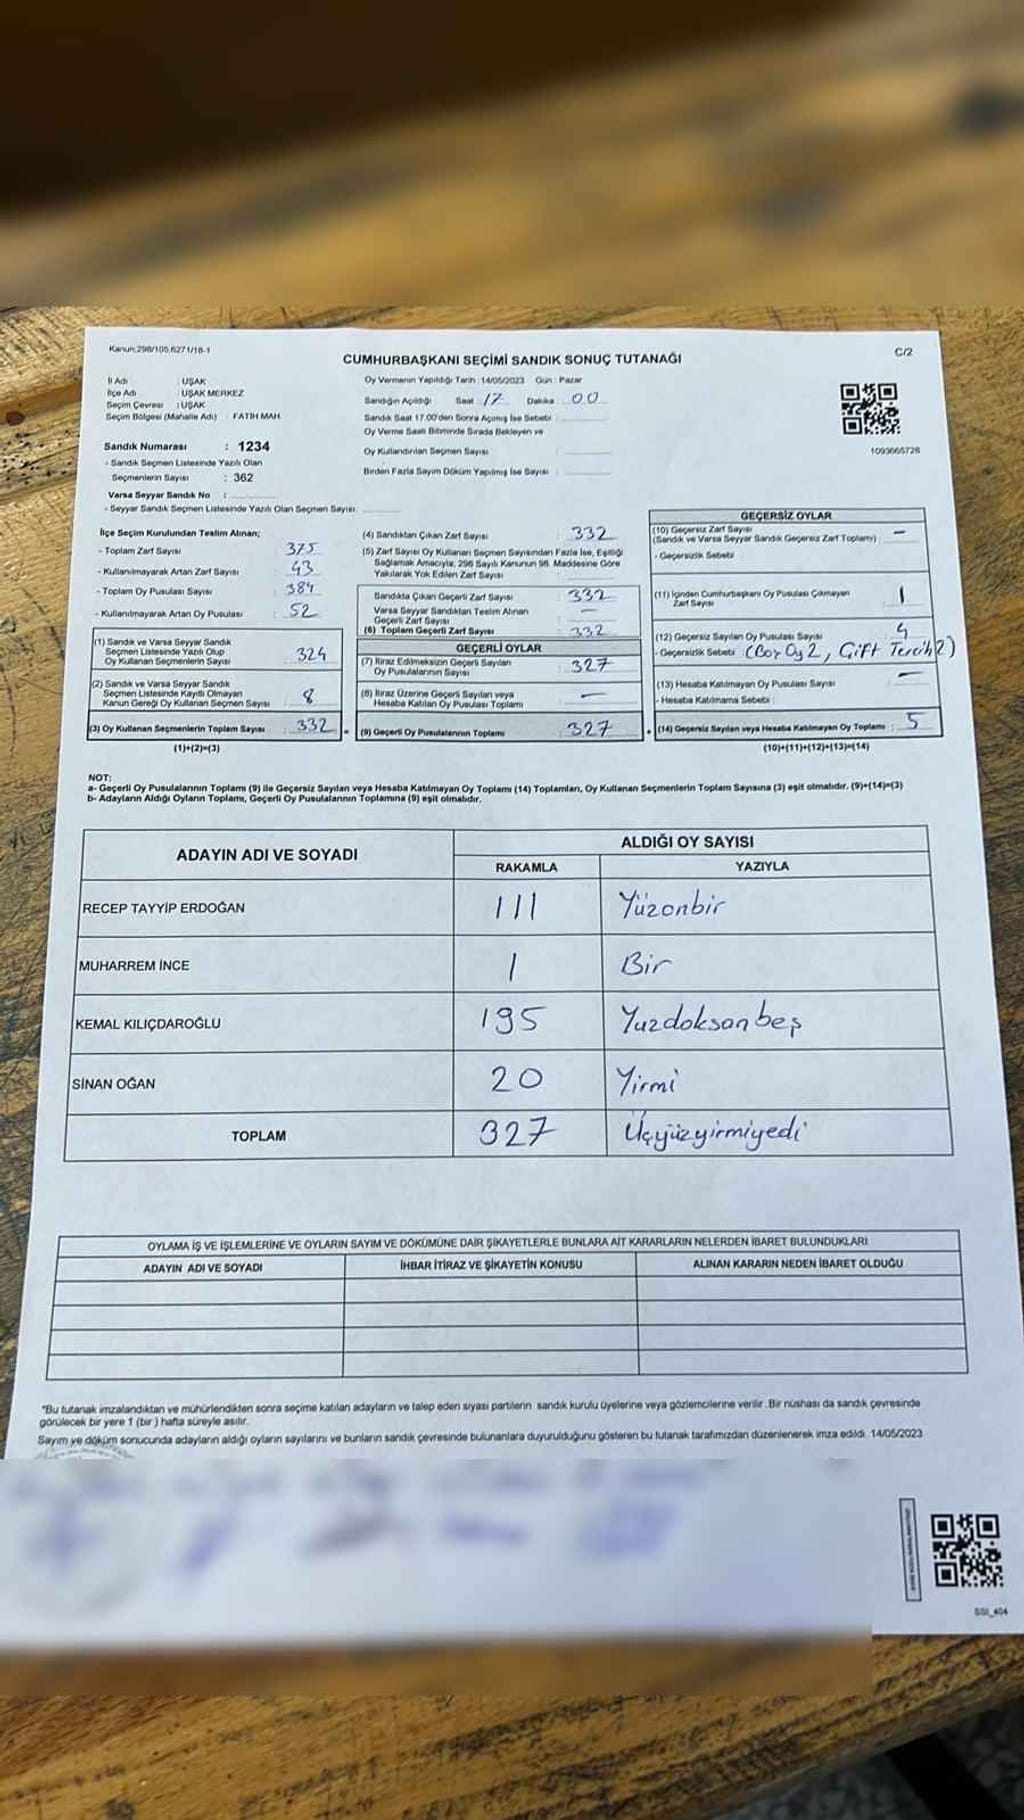 Kanun:298/105,6271/18-1
CUMHURBAŞKANI SEÇİMİ SANDIK SONUÇ TUTANAĞI
C/2
İl Adı : UŞAK
İlçe Adı : UŞAK MERKEZ
Seçim Çevresi : UŞAK
Seçim Bölgesi (Mahalle Adı) : FATİH MAH.
Sandık Numarası : 1234
- Sandık Seçmen Listesinde Yazılı Olan
Seçmenlerin Sayısı : 362
Varsa Seyyar Sandık No :
- Seyyar Sandık Seçmen Listesinde Yazılı Olan Seçmen Sayısı:
Oy Vermenin Yapıldığı Tarih :14/05/2023 Gün : Pazar
Sandığın Açıldığı Saat 17 Dakika 00
Sandık Saat 17.00'den Sonra Açımış İse Sebebi :
Oy Verme Saati Bitiminde Sırada Bekleyen ve
Oy Kullandırılan Seçmen Sayısı :
Birden Fazla Sayım Döküm Yapılmış İse Sayısı :
1093665726
İlçe Seçim Kurulundan Teslim Alınan;
- Toplam Zarf Sayısı : 375
- Kullanılmayarak Artan Zarf Sayısı : 43
- Toplam Oy Pusulası Sayısı : 384
- Kullanılmayarak Artan Oy Pusulası : 52
(1) Sandık ve Varsa Seyyar Sandık
Seçmen Listesinde Yazılı Olup
Oy Kullanan Seçmenlerin Sayısı : 324
(2) Sandık ve Varsa Seyyar Sandık
Seçmen Listesinde Kayıtlı Olmayan
Kanun Gereği Oy Kullanan Seçmen Sayısı : 8
(3) Oy Kullanan Seçmenlerin Toplam Sayısı : 332
(1)+(2)=(3)
(4) Sandıktan Çıkan Zarf Sayısı : 332
(5) Zarf Sayısı Oy Kullanan Seçmen Sayısından Fazla İse, Eşitliği
Sağlamak Amacıyla, 298 Sayılı Kanunun 98. Maddesine Göre
Yakılarak Yok Edilen Zarf Sayısı :
Sandıkta Çıkan Geçerli Zarf Sayısı : 332
Varsa Seyyar Sandıktan Teslim Alınan
Geçerli Zarf Sayısı : —
(6) Toplam Geçerli Zarf Sayısı : 332
GEÇERLİ OYLAR
(7) İtiraz Edilmeksizin Geçerli Sayılan
Oy Pusulalarının Sayısı : 327
(8) İtiraz Üzerine Geçerli Sayılan veya
Hesaba Katılan Oy Pusulası Toplamı : —
= (9) Geçerli Oy Pusulalarının Toplamı : 327
GEÇERSİZ OYLAR
(10) Geçersiz Zarf Sayısı
(Sandık ve Varsa Seyyar Sandık Geçersiz Zarf Toplamı) : —
- Geçersizlik Sebebi :
(11) İçinden Cumhurbaşkanı Oy Pusulası Çıkmayan
Zarf Sayısı : 1
(12) Geçersiz Sayılan Oy Pusulası Sayısı : 4
- Geçersizlik Sebebi : (Boş Oy 2, Çift Tercih 2)
(13) Hesaba Katılmayan Oy Pusulası Sayısı : —
- Hesaba Katılmama Sebebi :
+ (14) Geçersiz Sayılan veya Hesaba Katılmayan Oy Toplamı : 5
(10)+(11)+(12)+(13)=(14)
NOT:
a- Geçerli Oy Pusulalarının Toplamı (9) ile Geçersiz Sayılan veya Hesaba Katılmayan Oy Toplamı (14) Toplamları, Oy Kullanan Seçmenlerin Toplam Sayısına (3) eşit olmalıdır. (9)+(14)=(3)
b- Adayların Aldığı Oyların Toplamı, Geçerli Oy Pusulalarının Toplamına (9) eşit olmalıdır.
ADAYIN ADI VE SOYADI
ALDIĞI OY SAYISI
RAKAMLA YAZIYLA
RECEP TAYYİP ERDOĞAN 111 Yüzonbir
MUHARREM İNCE 1 Bir
KEMAL KILIÇDAROĞLU 195 Yuzdoksanbeş
SİNAN OĞAN 20 Yirmi
TOPLAM 327 Üçyüzyirmiyedi
OYLAMA İŞ VE İŞLEMLERİNE VE OYLARIN SAYIM VE DÖKÜMÜNE DAİR ŞİKAYETLERLE BUNLARA AİT KARARLARIN NELERDEN İBARET BULUNDUKLARI
ADAYIN ADI VE SOYADI İHBAR İTİRAZ VE ŞİKAYETİN KONUSU ALINAN KARARIN NEDEN İBARET OLDUĞU
*Bu tutanak imzalandıktan ve mühürlendikten sonra seçime katılan adayların ve talep eden siyasi partilerin sandık kurulu üyelerine veya gözlemcilerine verilir. Bir nüshası da sandık çevresinde
görülecek bir yere 1 (bir ) hafta süreyle asılır.
Sayım ve döküm sonucunda adayların aldığı oyların sayılarını ve bunların sandık çevresinde bulunanlara duyurulduğunu gösteren bu tutanak tarafımızdan düzenlenerek imza edildi. 14/05/2023
SSI_404